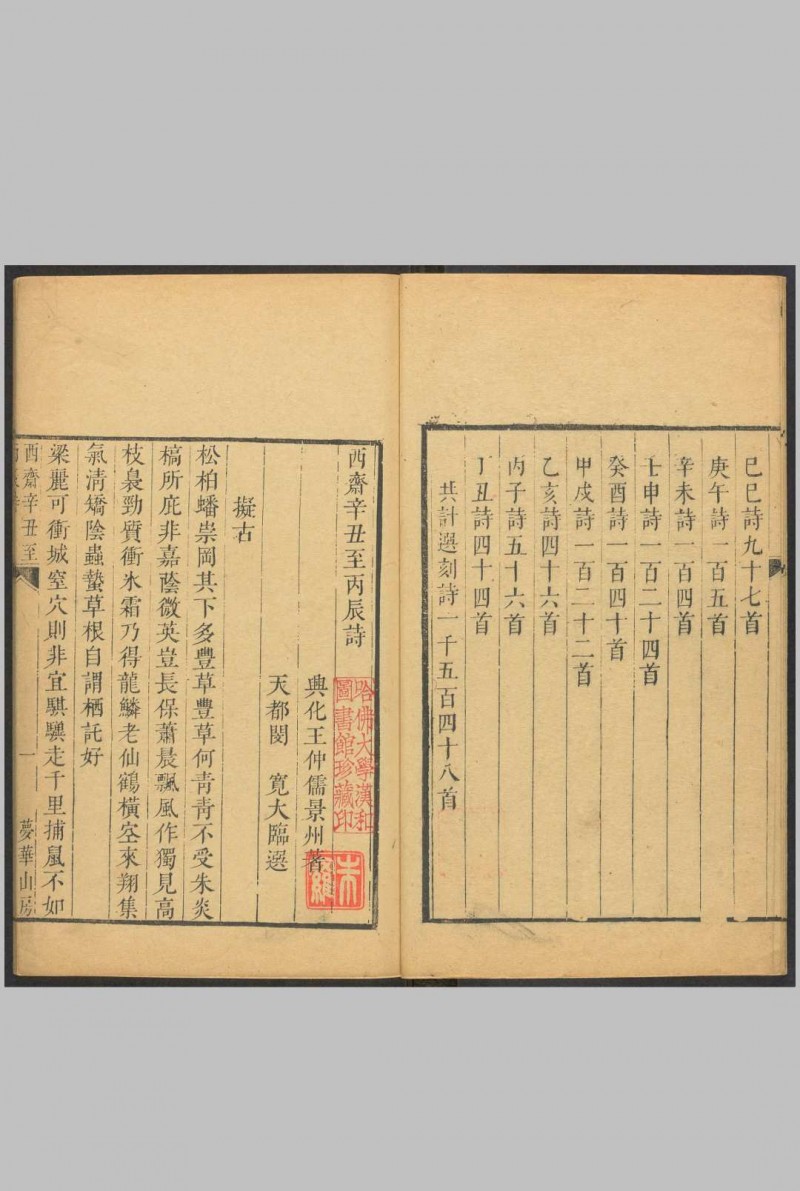 己巳詩九十七首
庚午詩一百五首
辛未詩一百四首
壬申詩一百二十四首
癸酉詩一百四十首
甲戌詩一百二十二首
乙亥詩四十六首
丙子詩五十六首
丁丑詩四十四首
共計選刻詩一千五百四十八首
西齋辛丑至丙辰詩
興化王仲儒景州著
天都閔　寬大臨選
哈佛大學漢和
圖書館珍藏印
擬古
松柏蟠崇岡其下多豐草豐草何青青不受朱炎
槁所庇非嘉蔭微英豈長保蕭晨飄風作獨見高
枝裊勁質衝氷霜乃得龍鱗老仙鶴橫空來翔集
氣清矯陰蟲蟄草根自謂栖託好
梁麗可衝城窒穴則非宜騏驥走千里捕鼠不如
西齋辛丑至
一
夢華山房